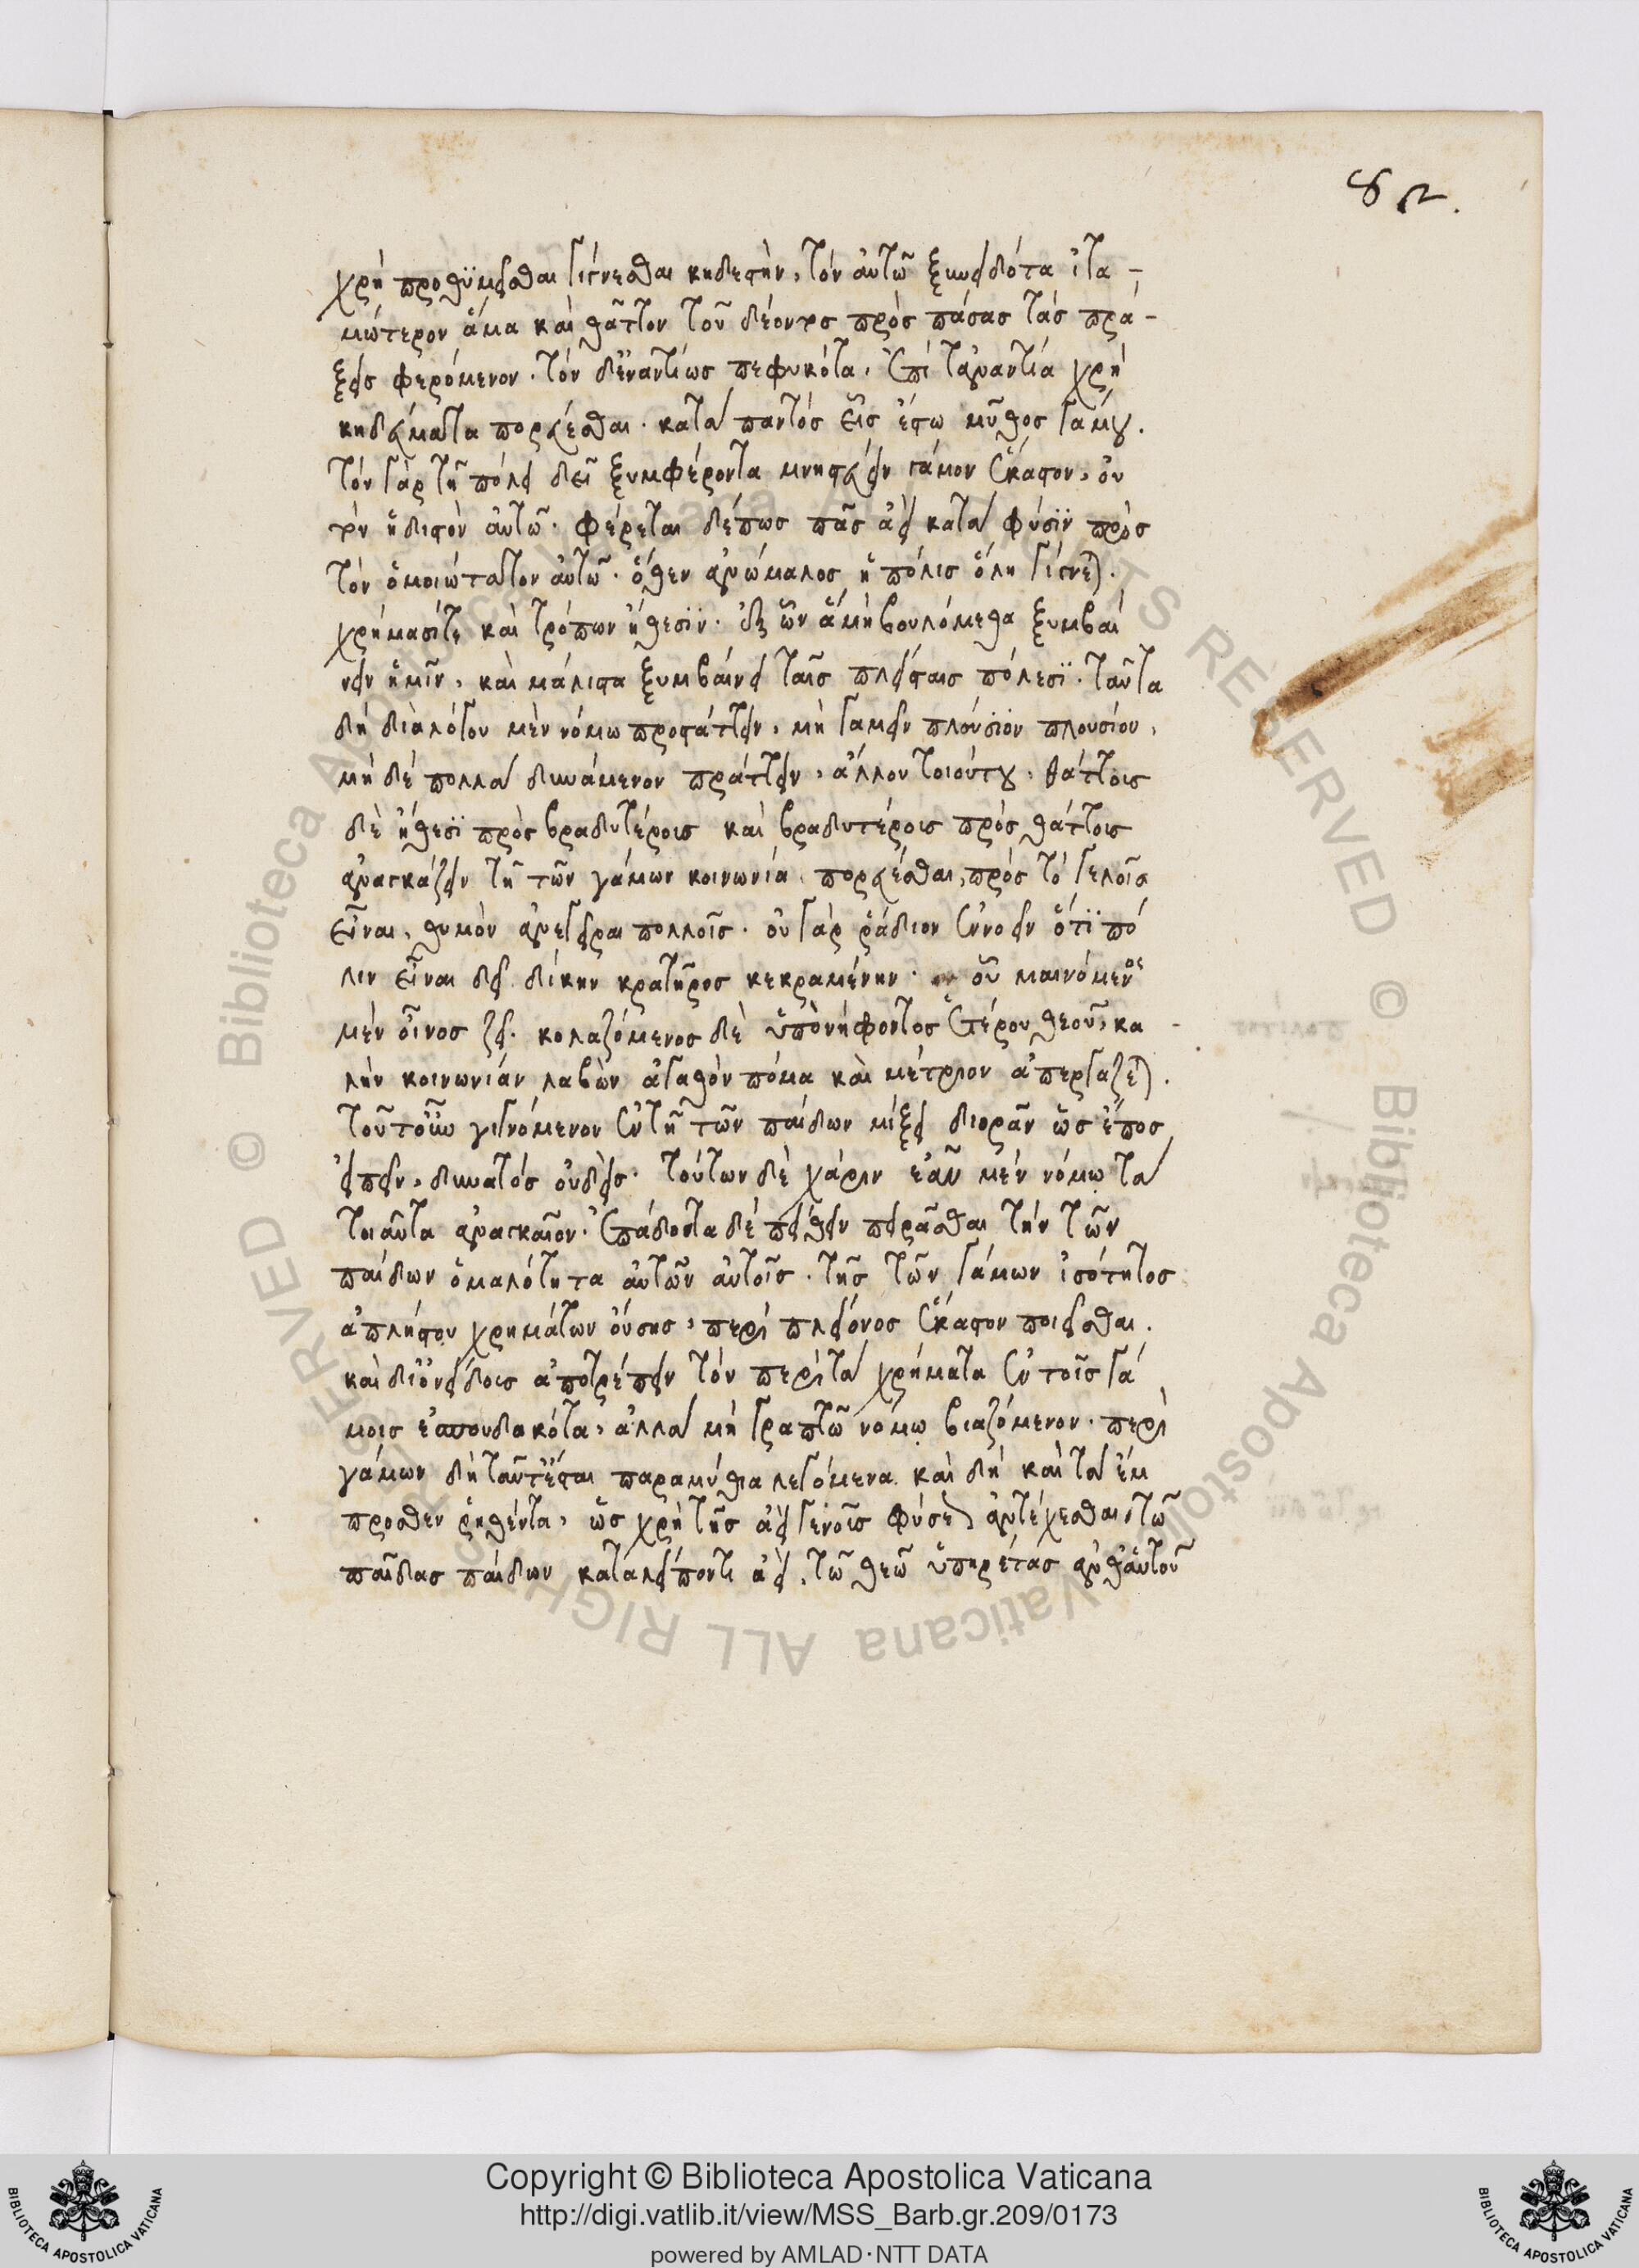 82.
χρὴ προθυμεῖσθαι γίγνεσθαι κηδεστὴν, τὸν αὑτῶ ξυνειδότα ἰτα-
μώτερον ἅμα καὶ θᾶττον τοῦ δέοντος πρὸς πάσας τὰς πρά-
ξεις φερόμενον. τὸν δ' ἐναντίως πεφυκότα, ἐπὶ τἀναντία χρὴ
κηδεύματα πορεύεσθαι. κατὰ παντὸς εἷς ἔστω μῦθος γάμου.
τὸν γὰρ τῇ πόλει δεῖ ξυμφέροντα μνηστεύειν γάμον ἕκαστον, οὐ
τὸν ἥδιστον αὑτῶ. φέρεται δέ πως πᾶς ἀεὶ κατὰ φύσϊν πρὸς
τὸν ὁμοιώτατον αὑτῶ. ὅθεν ἀνώμαλος ἡ πόλις ὅλη γίγνεται.
χρήμασί τε καὶ τρόπων ἤθεσϊν. ἐξ ὧν ἃ μὴ βουλόμεθα ξυμβαί
νειν ἡμῖν, καὶ μάλιστα ξυμβαίνει ταῖς πλείσταις πόλεσϊ. ταῦτα
δὴ διὰ λόγου μὲν νόμω προστάττειν, μὴ γαμεῖν πλούσϊον πλουσίου,
μὴ δὲ πολλὰ δυνάμενον πράττειν, ἄλλου τοιούτου, θάττοις
δὲ ἤθεσϊ πρὸς βραδυτέροις καὶ βραδυτέροις πρὸς θάττοις
ἀναγκάζειν τῇ τῶν γάμων κοινωνία πορεύεσθαι, πρὸς τὸ γελοῖα
εἶναι, θυμὸν ἀνεγεῖραι πολλοῖς. οὐ γὰρ ῥάδιον ἐννοεῖν ὅτϊ πό
λιν εἶναι δεῖ δίκην κρατῆρος κεκραμένην. οὗ μαινόμενος
μὲν οἶνος ζεῖ. κολαζόμενος δὲ ὑπὸ νήφοντος ἑτέρου θεοῦ, κα-
λὴν κοινωνίαν λαβὼν ἀγαθὸν πόμα καὶ μέτριον ἀπεργάζεται.
τοῦτ' οὖν γιγνόμενον ἐν τῇ τῶν παίδων μίξει διορᾶν ὡς ἔπος
εἰπεῖν, δυνατὸς οὐδεὶς. τούτων δὲ χάριν ἐᾶν μὲν νόμω τὰ
τοιαῦτα ἀναγκαῖον. ἐπάδοντα δὲ πείθειν πειρᾶσθαι τὴν τῶν
παίδων ὁμαλότητα αὐτῶν αὑτοῖς. τῆς τῶν γάμων ἰσότητος
ἀπλήστου χρημάτων οὔσης, περὶ πλείονος ἕκαστον ποιεῖσθαι.
καὶ δι' ὀνείδους ἀποτρέπειν τὸν περὶ τὰ χρήματα ἐν τοῖς γά
μοις ἐσπουδακότα, ἀλλὰ μὴ γραπτῶ νόμω βιαζόμενον. περὶ
γάμων δὴ ταῦτ' ἔσται παραμύθια λεγόμενα. καὶ δὴ καὶ τὰ ἔμ
προσθεν ῥηθέντα, ὡς χρὴ τῆς ἀειγενοῦς φύσεως ἀντέχεσθαι τῶ
παῖδας παίδων καταλείποντι ἀεὶ, τῶ θεῶ ὑπηρέτας ἀνθ' αὑτοῦ
Copyright © Biblioteca Apostolica Vaticana
http://digi.vatlib.it/view/MSS_Barb.gr.209/0173
powered by AMLAD·NTT DATA
BIBLIOTECA APOSTOLICA VATICANA
BIBLIOTECA APOSTOLICA VATICANA
© Biblioteca Apostolica Vaticana ALL RIGHTS RESERVED